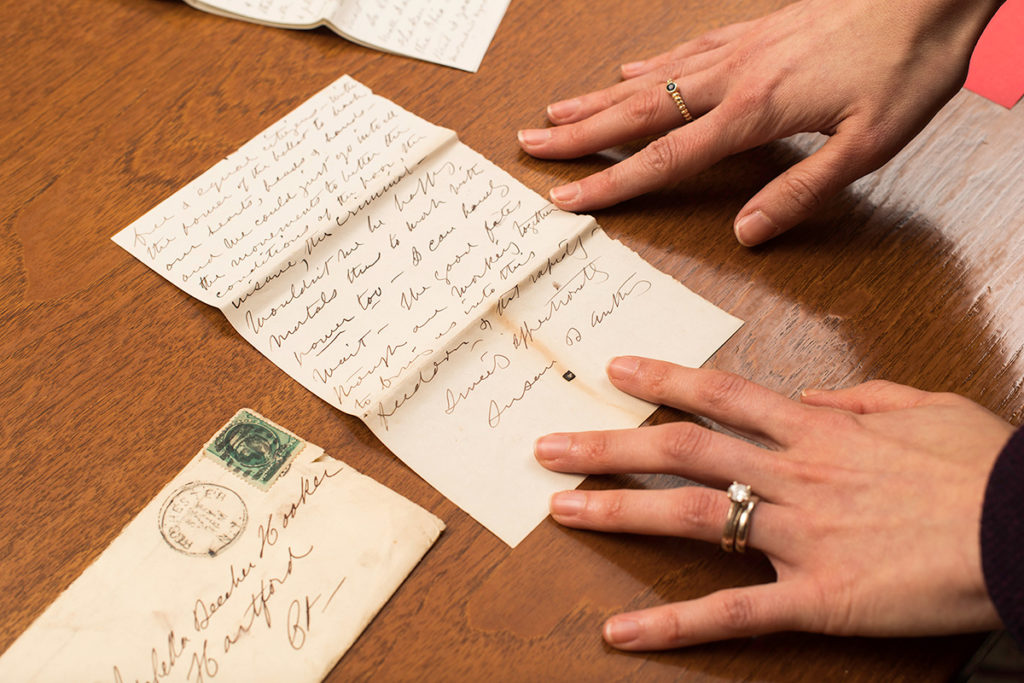 free & equal citizens - with
the power of the ballot to back
our hearts, heads & hands -
and we could just go into all
the movements to better the
conditions of the poor, the
insane, the criminal,
Wouldn't we be happy
mortals thus to work with
power too - I can hardly
wait - The good fates
though are working together
to bring us into this
freedom & rapidly
affectionately
Susan B Anthony
ROCHESTER
Isabella Beecher Hooker
Hartford
Ct -